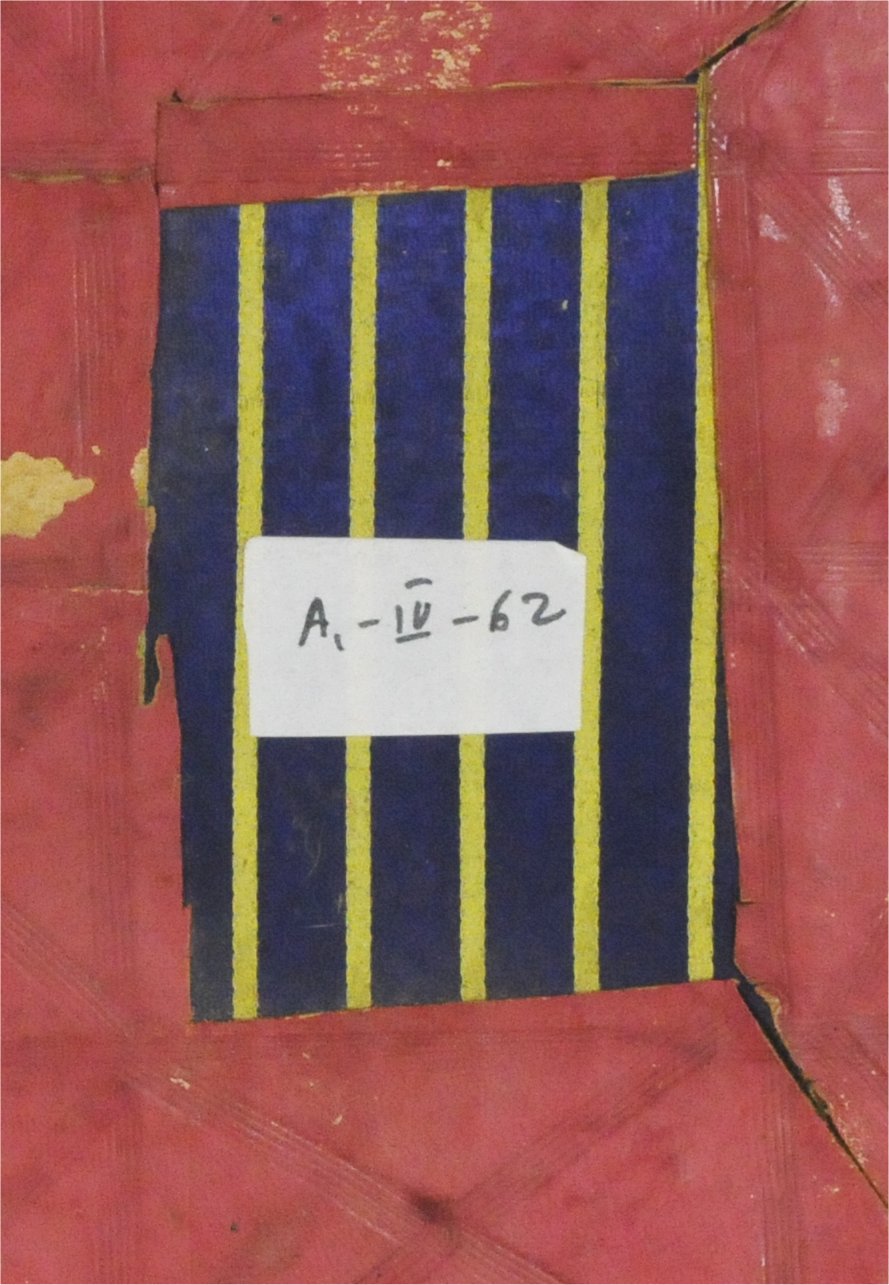 A, - IV - 62